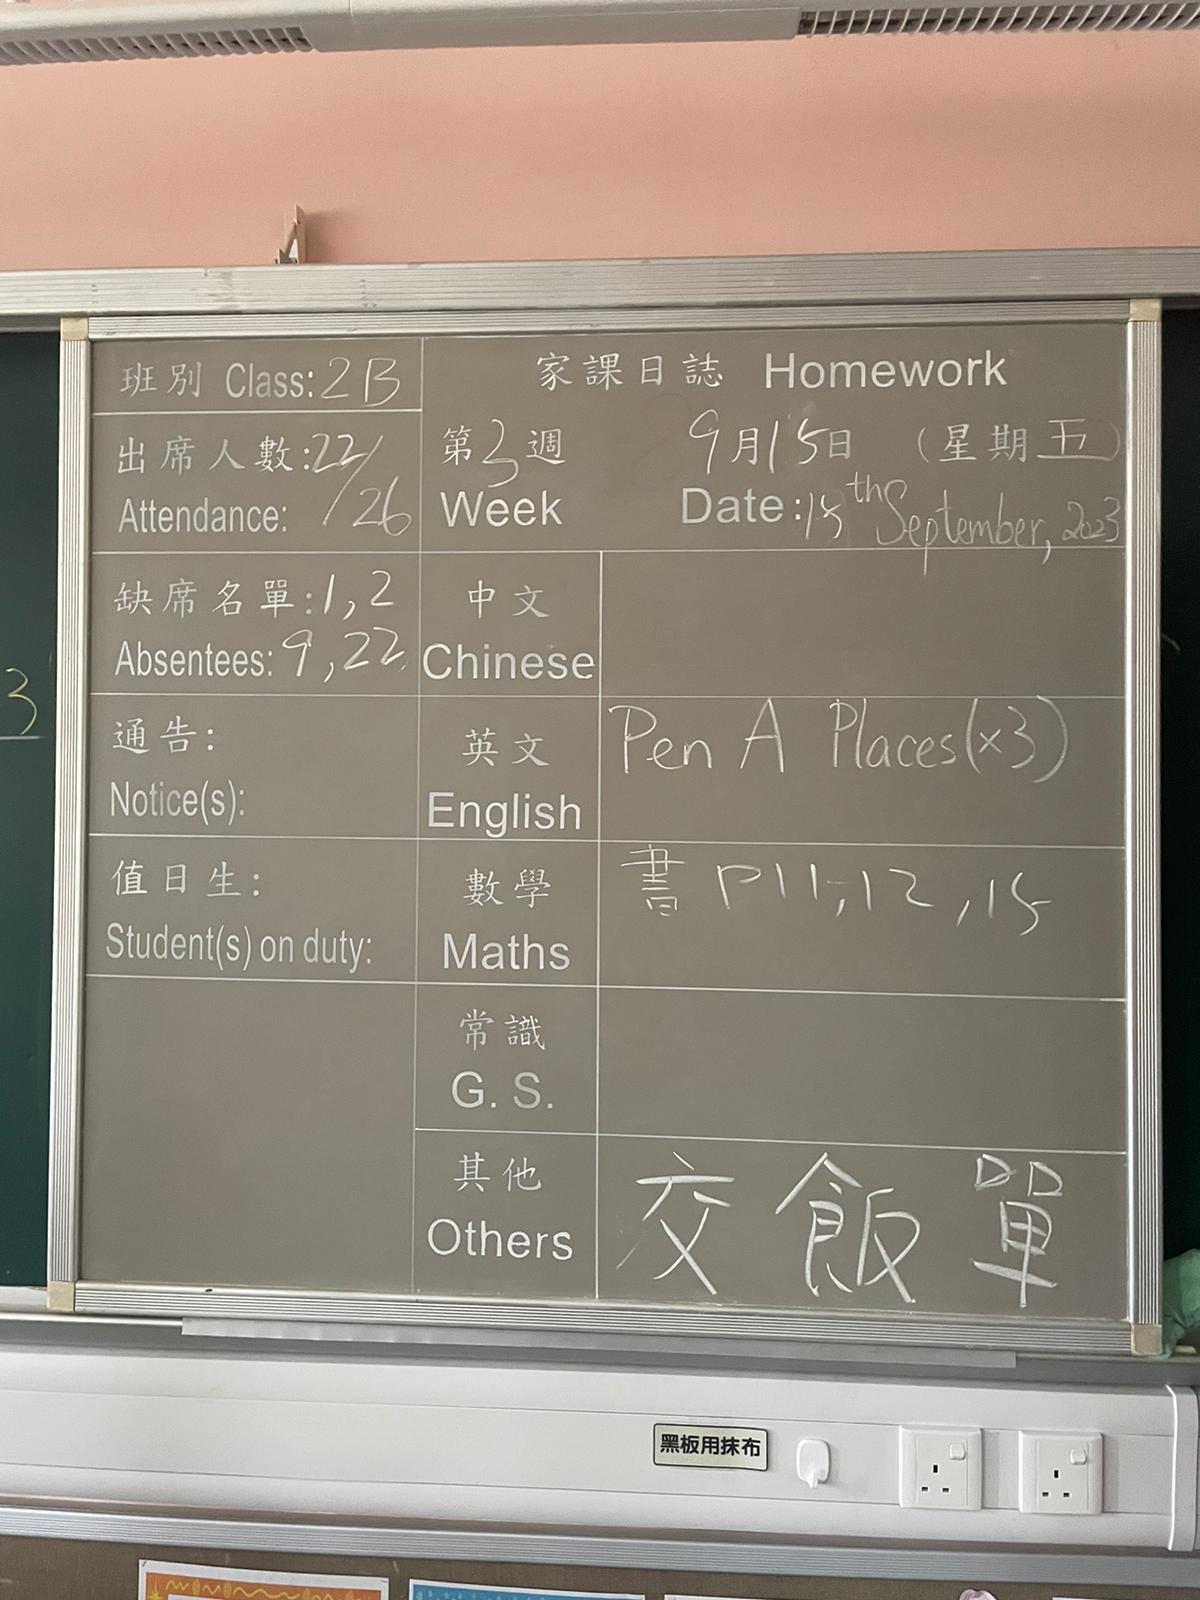 班別 Class: 2B
家課日誌 Homework
出席人數: 22/26
Attendance:
第3週
Week
9月15日 (星期五)
Date: 15th September, 2023
缺席名單: 1, 2
Absentees: 9, 22
中文
Chinese
通告:
Notice(s):
英文
English
Pen A Places (×3)
值日生:
Student(s) on duty:
數學
Maths
書 P11, 12, 15
常識
G. S.
其他
Others
交飯單
3
黑板用抹布